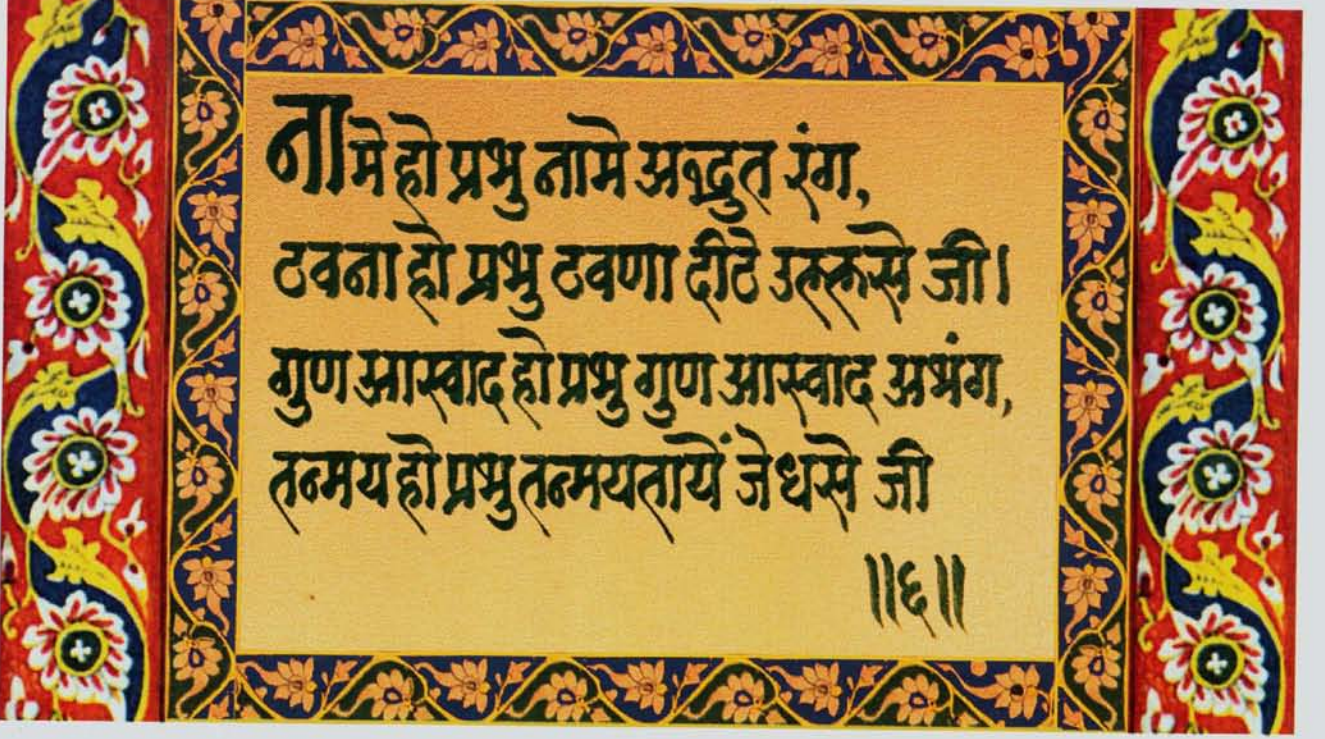 नामे हो प्रभु नामे अद्भुत रंग,
ठवना हो प्रभु ठवणा दीठे उल्लसे जी।
गुण आस्वाद हो प्रभु गुण आस्वाद अभंग,
तन्मय हो प्रभु तन्मयतायें जे धसे जी
॥६॥